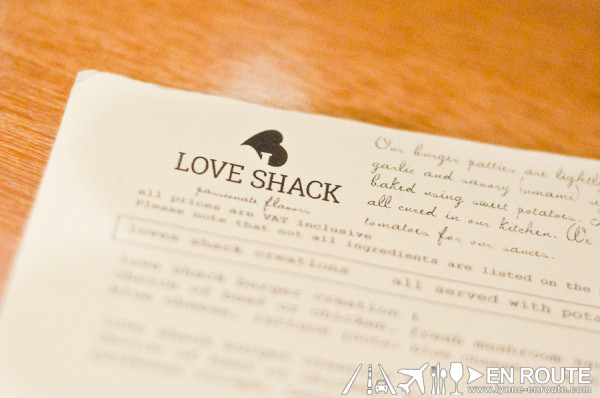 LOVE SHACK
passionate flavors
all prices are VAT inclusive
Please note that not all ingredients are listed on the
Our burger patties are lightly
garlic and savory (umami)
baked using sweet potatoes.
all cured in our kitchen. We
tomatoes for our sauces.
loves shack creations all served with
love shack burger creation 1
choice of beef or chicken, fresh mushroom
blue cheese, lettuce
love shack burger
choice of
EN ROUTE
www.lynne-enroute.com